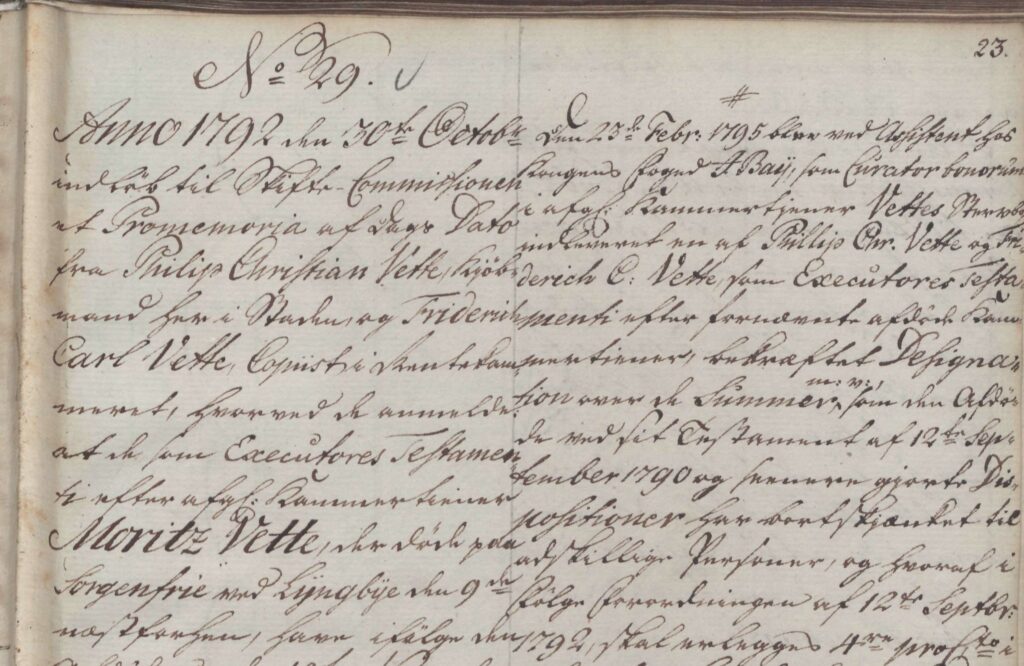 23.
No 29.
Anno 1792 den 30te Octobr
indløb til Skifte-Commissionen
et Promemoria af Dags Dato
fra Philip Christian Vette, Kjøb-
mand her i Staden, og Friderich
Carl Vette, Copiist i Rentekam-
meret, hvorved de anmelde:
at de som Executores Testamen-
ti efter afgl: Kammertiener
Moritz Vette, der døde paa
Sorgenfrie ved Lyngbye den 9de
næstforhen, have ifølge den
#
Den 23de Febr: 1795 blev ved Assistent hos
Kongens Foged F Bay, som Curator bonorum
i afgl: Kammertiener Vettes Sterboe
indleveret en af Phillip Chr. Vette og Fri-
derich C: Vette, som Executores Testa-
menti efter fornævnte afdøde Kam-
mertiener, bekræftet Designa-
tion over de Summer m: v:, som den Afdø-
de ved sit Testament af 12te Sep-
tember 1790 og senere gjorte Dis-
positioner har bortskjænket til
adskillige Personer, og hvoraf i
Følge Forordningen af 12te Septbr:
1792, skal erlegges 4re proCto i